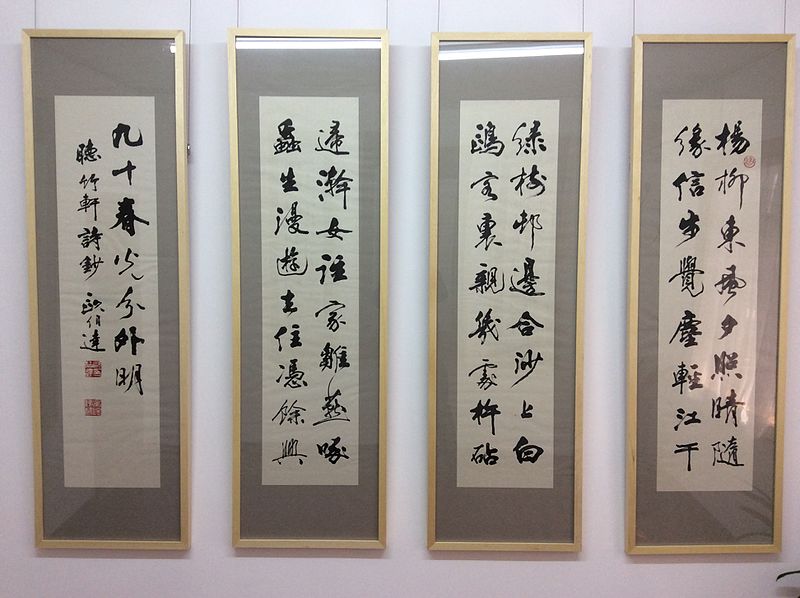 楊柳東風夕照晴隨
緣信步覺塵輕江干
綠樹邨邊合沙上白
鷗客裏親幾處杵砧
歸澣女誰家雛燕啄
蟲生漫遊去住憑餘興
九十春光分外明
聽竹軒詩鈔 歐伯達